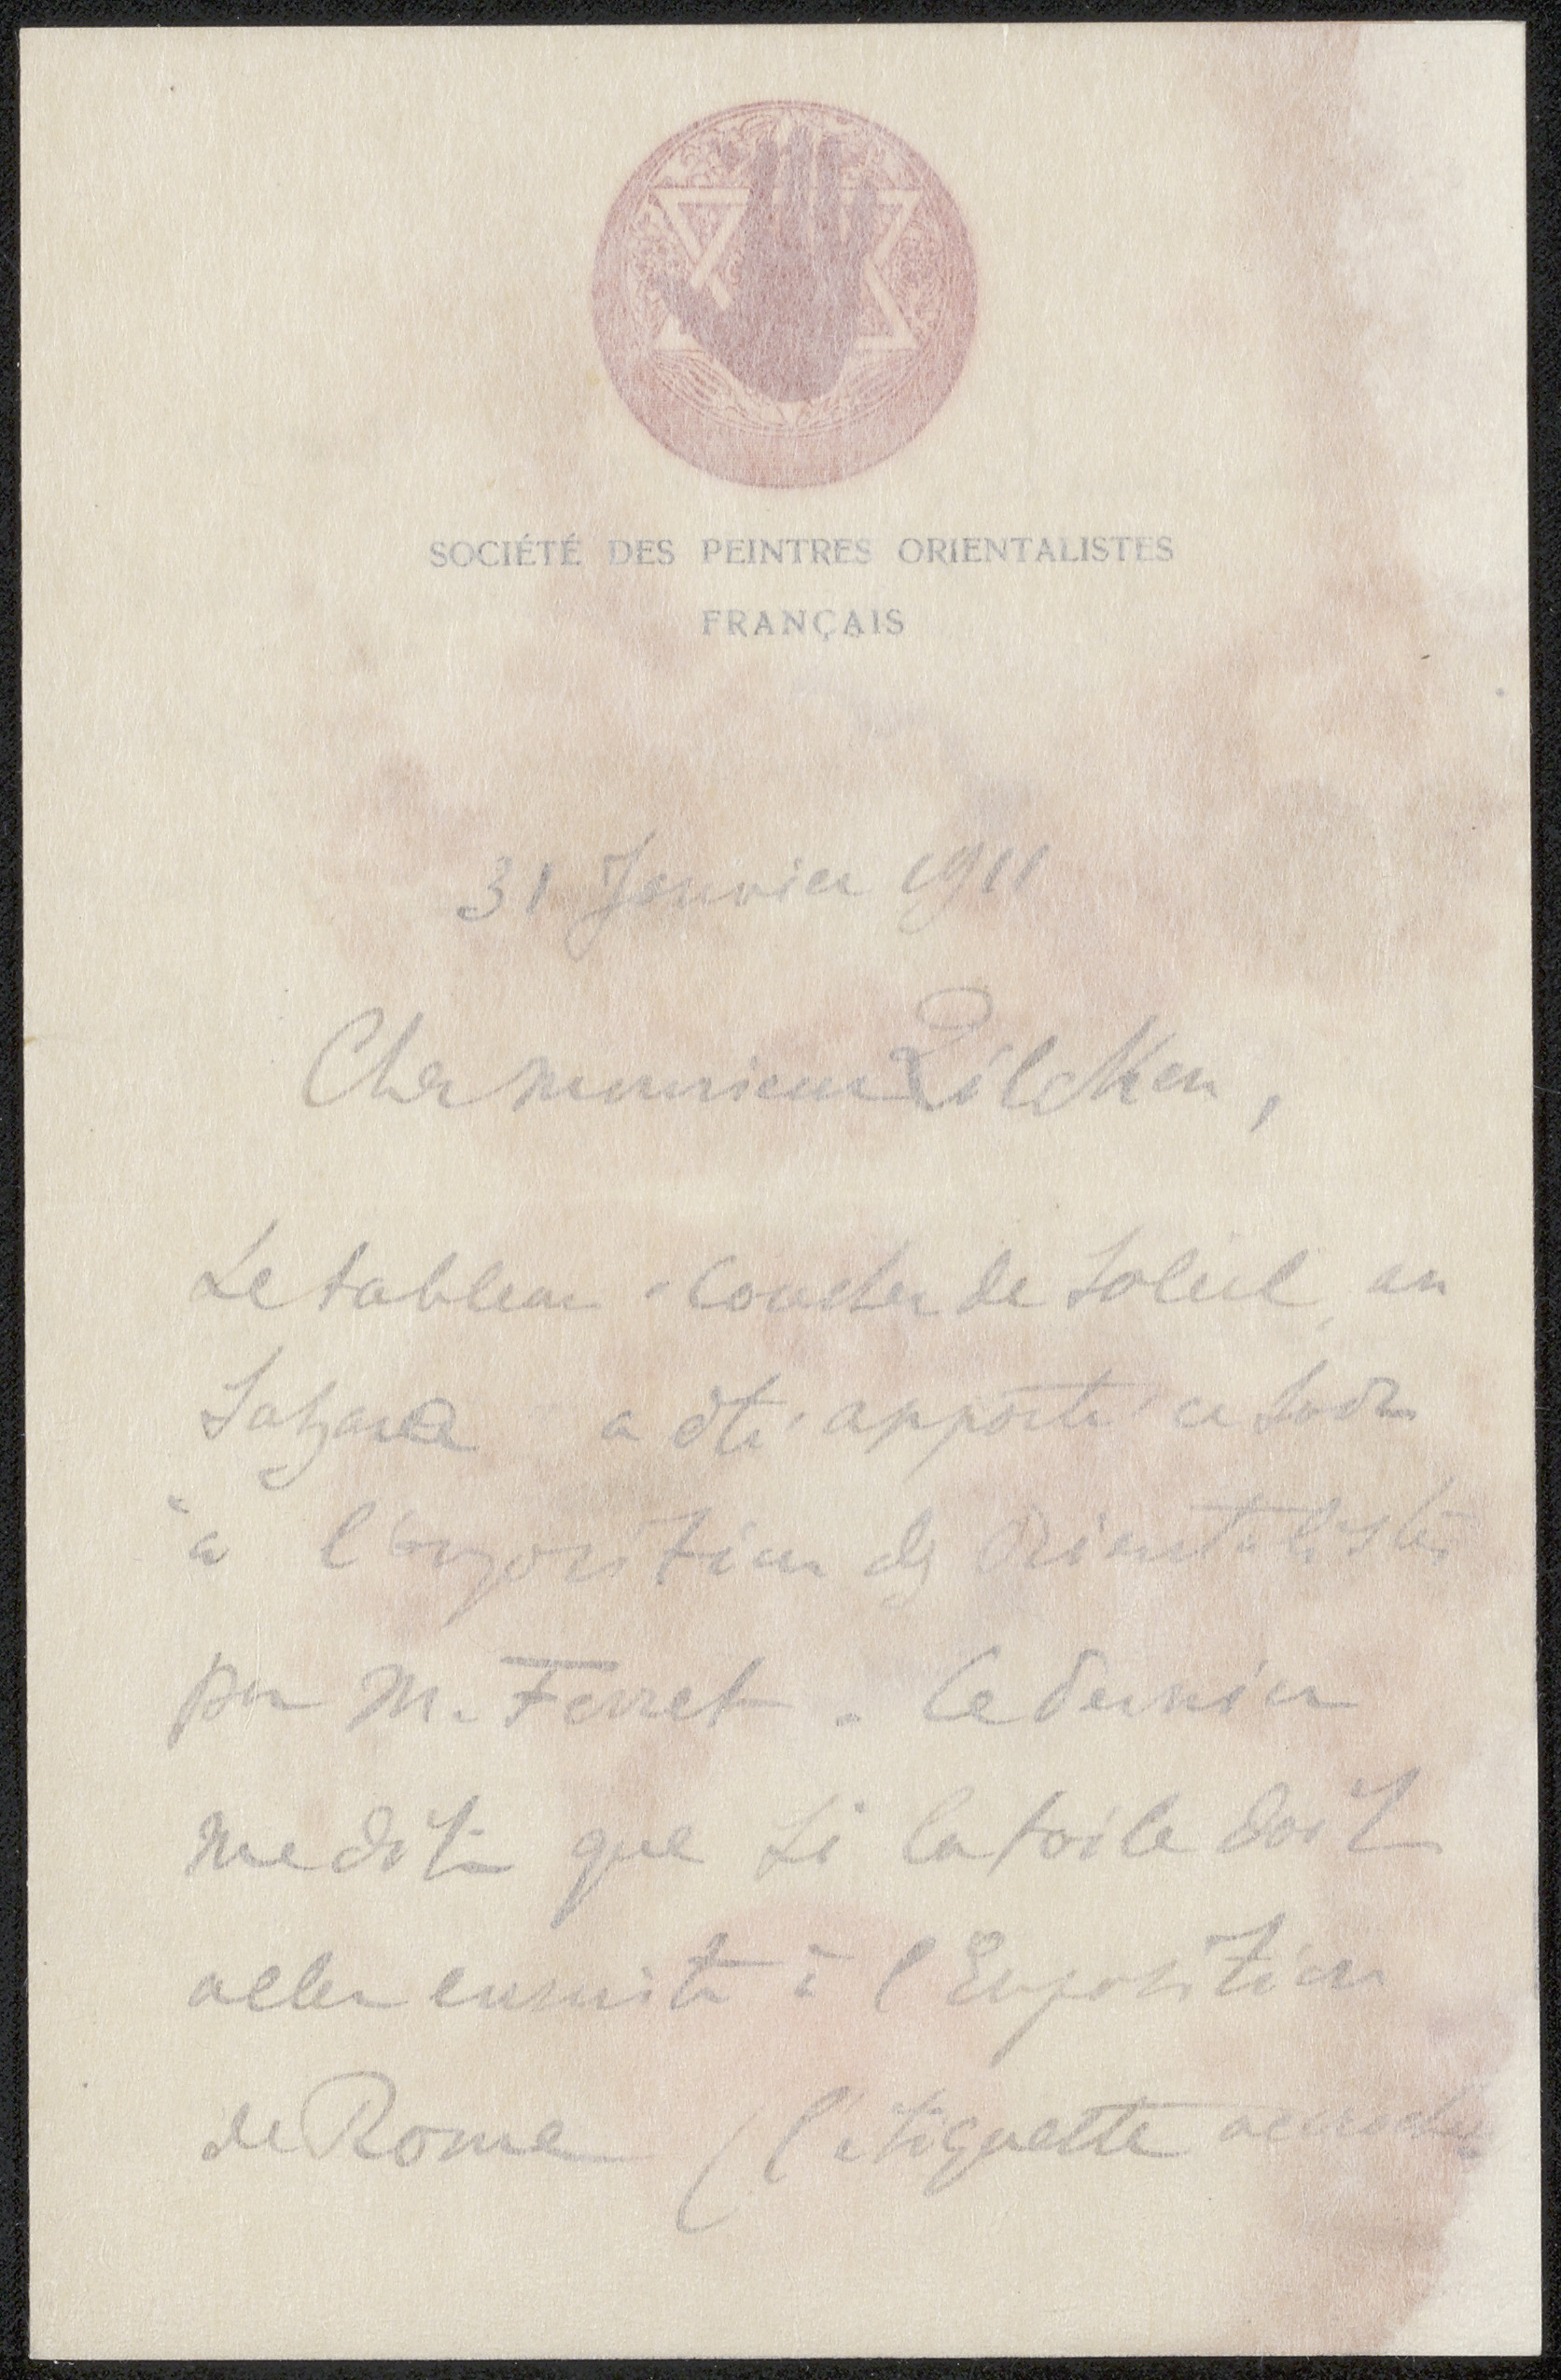 SOCIÉTÉ DES PEINTRES ORIENTALISTES
FRANÇAIS
31 Janvier 1911
Cher monsieur Zilcken,
Le tableau "Coucher de Soleil au
Sahara a été apporté ce soir
à l'exposition des Orientalistes
par M. Ferret. Ce dernier
me dit que si la toile doit
aller ensuite à l'Exposition
de Rome (l'étiquette